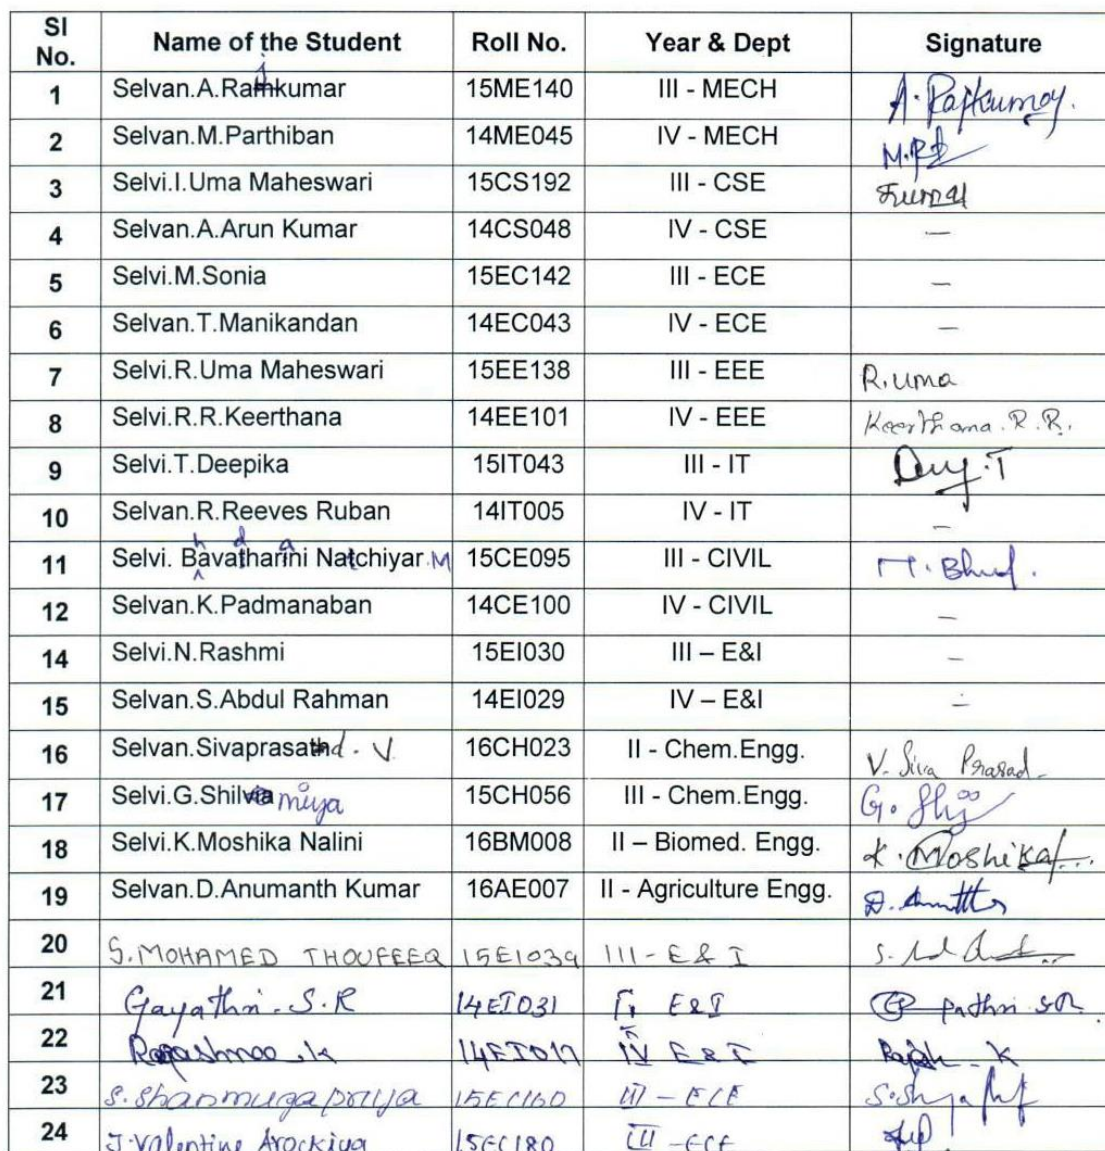 Sl No. Name of the Student Roll No. Year & Dept Signature
1 Selvan.A.Rajkumar 15ME140 III - MECH A. Rajkumar.
2 Selvan.M.Parthiban 14ME045 IV - MECH
3 Selvi.I.Uma Maheswari 15CS192 III - CSE
4 Selvan.A.Arun Kumar 14CS048 IV - CSE –
5 Selvi.M.Sonia 15EC142 III - ECE –
6 Selvan.T.Manikandan 14EC043 IV - ECE –
7 Selvi.R.Uma Maheswari 15EE138 III - EEE R.uma
8 Selvi.R.R.Keerthana 14EE101 IV - EEE Keerthana.R.R.
9 Selvi.T.Deepika 15IT043 III - IT
10 Selvan.R.Reeves Ruban 14IT005 IV - IT –
11 Selvi. Bhavadharani Natchiyar.M 15CE095 III - CIVIL
12 Selvan.K.Padmanaban 14CE100 IV - CIVIL –
14 Selvi.N.Rashmi 15EI030 III – E&I –
15 Selvan.S.Abdul Rahman 14EI029 IV – E&I –
16 Selvan.Sivaprasad. V 16CH023 II - Chem.Engg. V. Siva Prasad
17 Selvi.G.Shilmiya 15CH056 III - Chem.Engg.
18 Selvi.K.Moshika Nalini 16BM008 II – Biomed. Engg. K. Moshika
19 Selvan.D.Anumanth Kumar 16AE007 II - Agriculture Engg.
20 S. MOHAMED THOUFEEQ 15EI039 III - E & I
21 Gayathri. S.R 14EI031 E&I
22 14EI017 IV E&I
23 S. Shanmugapriya 15EC160 III - ECE
24 J. Valentine Arockiya 15EC180 III - ECE